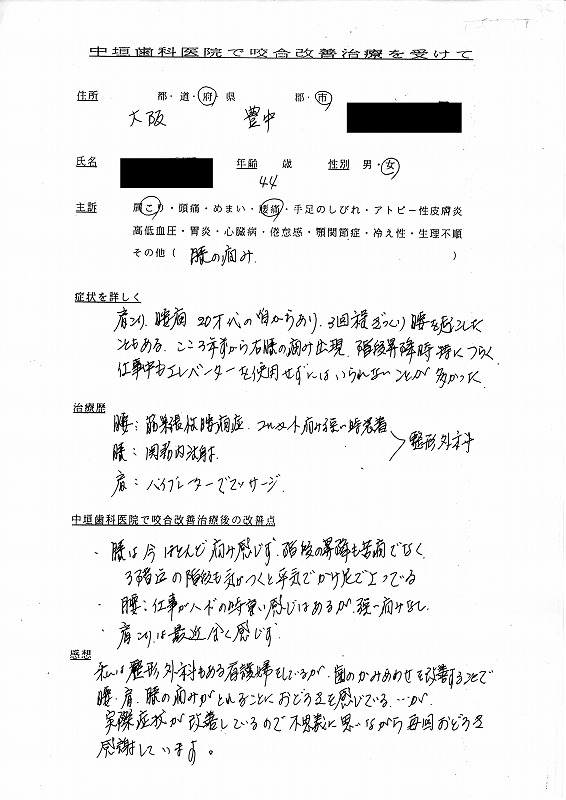 中垣歯科医院で咬合改善治療を受けて
住所 都・道・府・県 郡・市
大阪 豊中
氏名 年齢 歳 性別 男・女
44
主訴 肩こり・頭痛・めまい・腰痛・手足のしびれ・アトピー性皮膚炎
高低血圧・胃炎・心臓病・倦怠感・顎関節症・冷え性・生理不順
その他( 膝の痛み )
症状を詳しく
肩こり、腰痛 20才代の頃からあり、3回程ぎっくり腰を起こした
こともある。ここ3年ずから右膝の痛み出現、階段昇降時特につらく
仕事中もエレベーターを使用せずにはいられないことが多かった
治療歴
腰:筋緊張性腰痛症、コルセット痛み強い時装着
膝:関節内注射 整形外科
肩:バイブレーターでマッサージ
中垣歯科医院で咬合改善治療後の改善点
・膝は今ほとんど痛み感じず、階段の昇降も苦痛でなく
3階位の階段も気がつくと平気でかけ足で上ってる
・腰:仕事がハードの時重い感じはあるが、強い痛みなし
・肩こりは最近全く感じず
感想
私は整形外科もある看護婦をしているが、歯のかみあわせを改善することで
腰、肩、膝の痛みがとれることにおどろきを感じている…が
実際症状が改善しているので不思議に思いながら毎回おどろき
感謝しています。